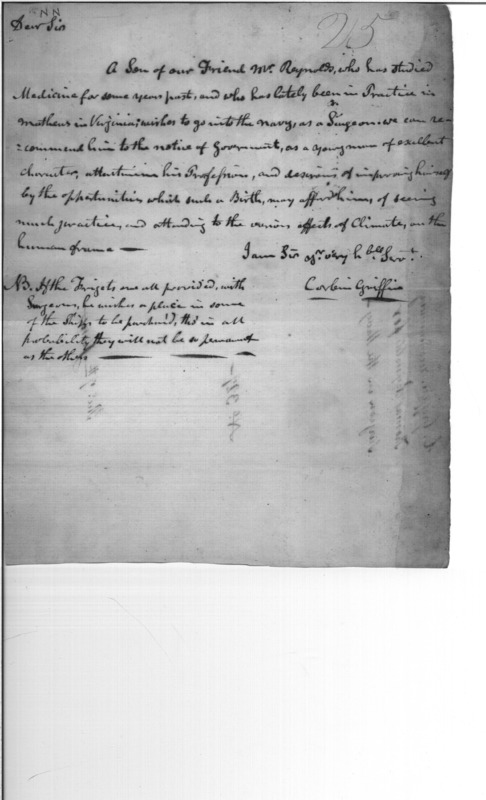 25
Dear Sir
A Son of our Friend Mr. Reynolds, who has studied
Medicine for some years past, and who has lately been in Practice in
Mathews in Virginia: wishes to go into the navy, as a Surgeon. we can re-
:commend him to the notice of Government, as a young man of excellent
character, attentive in his Profession, and desirous of improving himself
by the oppertunities which such a Birth, may afford him, of seeing
much practice, and attending to the various effects of Climate, on the
human frame —
I am Sir yr. very h ble Servt.
Corbin Griffin
NB. If the Frigets are all provided, with
Surgeons, he wishes a place in some
of the Ships to be purchas'd, tho' in all
probability they will not be so permanent
as the others